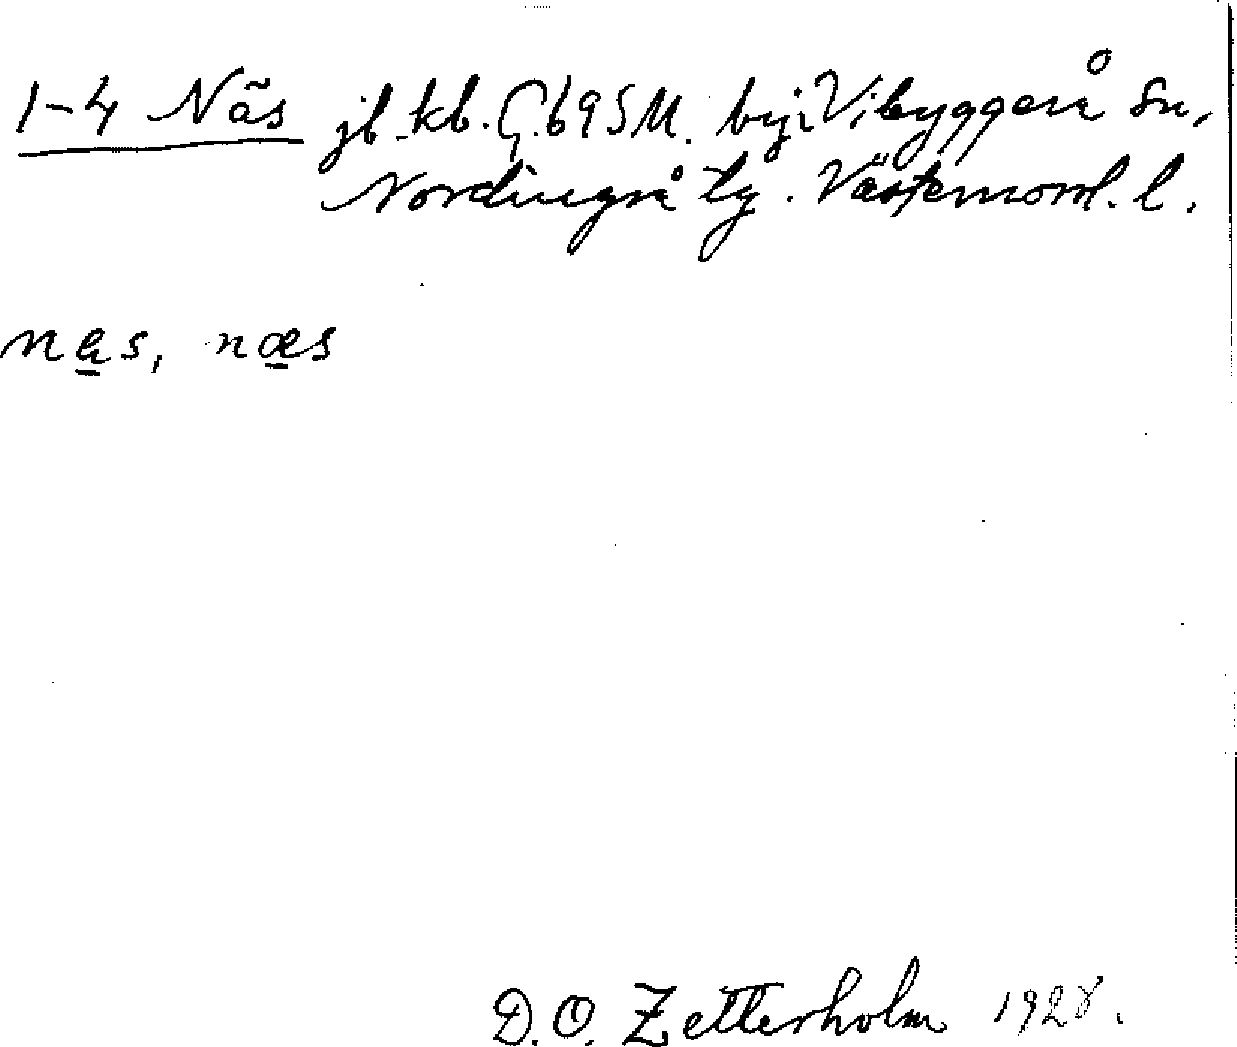 1-4 Näs jb. kb. G. 695M. by i Vibyggerå sn,
Nordingrå tg. Västernorrl. l.
næs, næs
D. O. Zetterholm 1928.